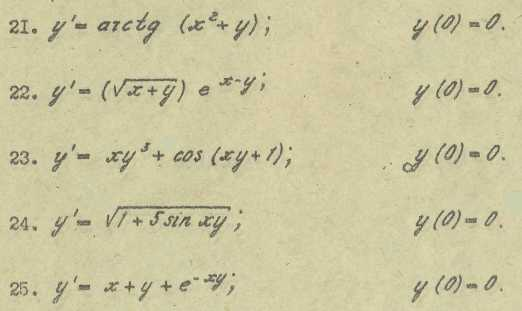 21. y' = arctg (x² + y); y(0) = 0.
22. y' = (√(x+y)) e^(x-y); y(0) = 0.
23. y' = xy³ + cos (xy + 1); y(0) = 0.
24. y' = √(1 + 5 sin xy); y(0) = 0.
25. y' = x + y + e^(-xy); y(0) = 0.